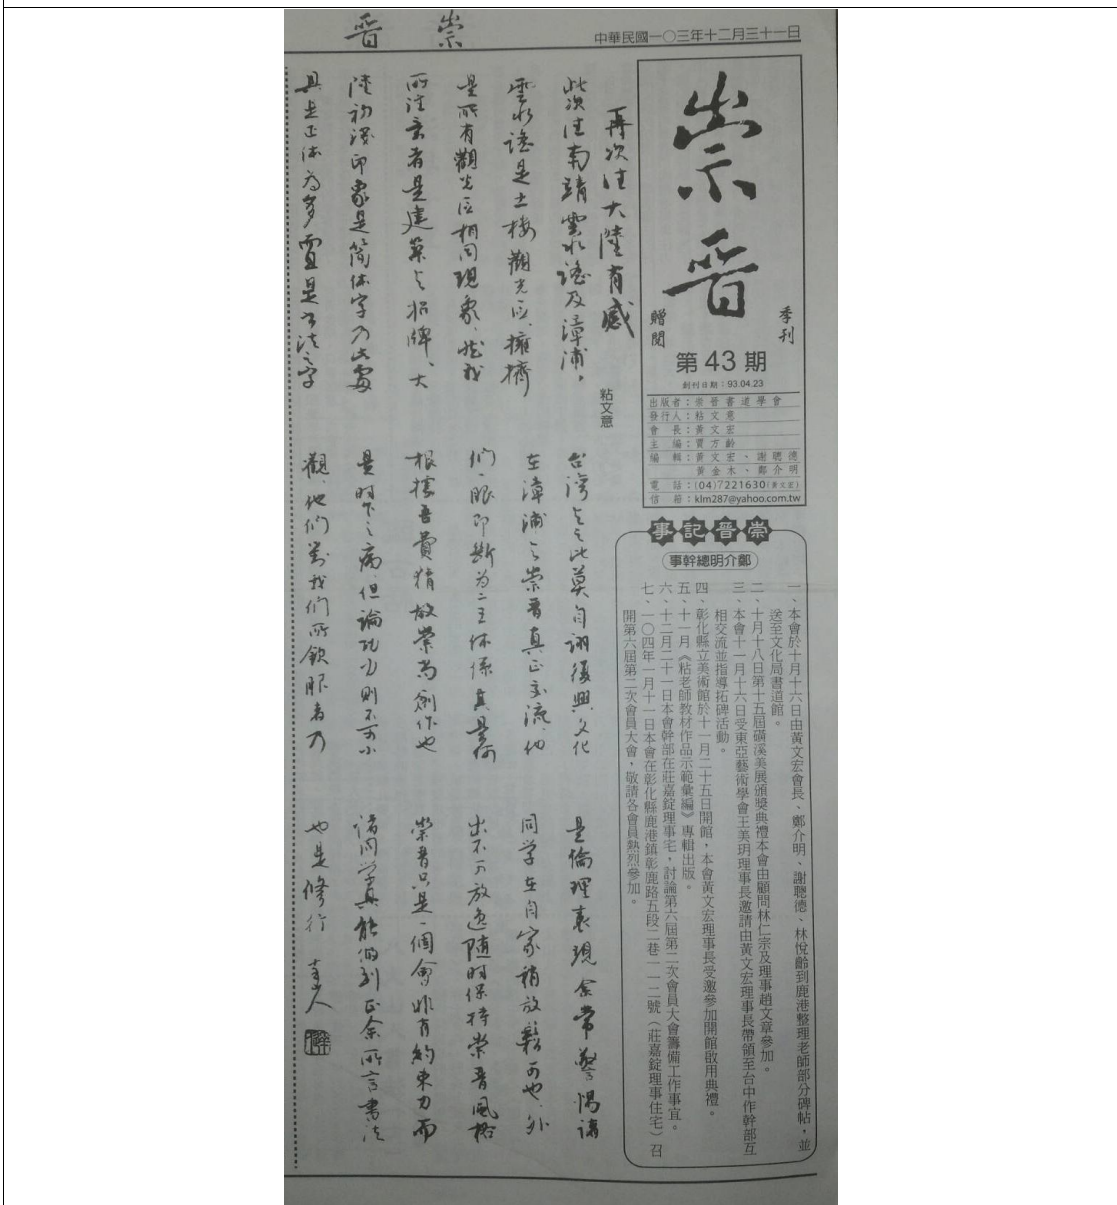 中華民國一〇三年十二月三十一日
崇晉
崇晉
季刊
贈閱
第 43 期
創刊日期：93.04.23
出版者：崇晉書道學會
發行人：粘文意
會　長：黃文宏
主　編：賈方齡
編　輯：黃文宏、謝聰德
黃金木、鄭介明
電　話：(04)7221630(黃文宏)
信　箱：klm287@yahoo.com.tw
崇晉記事
鄭介明總幹事
一、本會於十月十六日由黃文宏會長、鄭介明、謝聰德、林悅齡到鹿港整理老師部分碑帖，並
送至文化局書道館。
二、十月十八日第十五屆磺溪美展頒獎典禮本會由顧問林仁宗及理事趙文章參加。
三、本會十一月十六日受東亞藝術學會王美玥理事長邀請由黃文宏理事長帶領至台中作幹部互
相交流並指導拓碑活動。
四、彰化縣立美術館於十一月二十五日開館，本會黃文宏理事長受邀參加開館啟用典禮。
五、十一月《粘老師教材作品示範彙編》專輯出版。
六、十二月二十一日本會幹部在莊嘉錠理事宅，討論第六屆第二次會員大會籌備工作事宜。
七、一〇四年一月十一日本會在彰化縣鹿港鎮彰鹿路五段二巷一一二號（莊嘉錠理事住宅）召
開第六屆第二次會員大會，敬請各會員熱烈參加。
再次往大陸有感
粘文意
此次往南靖雲水謠及漳浦，
雲水謠是土樓觀光區、擁擠
是所有觀光區相同現象、然我
所注意者是建築之招牌、大
陸初淺印象是簡体字乃此處
具是正体為多而且是書法字
觀、他們對我們所欽服者乃
是時下之病、但論功力則不可小
根據吾費猜故崇尚創作也
們一眼即斷為二王体係真是何
在漳浦之崇晉真正交流、他
台灣之比莫自詡復興文化
是倫理表現余常警惕諸
同学在自家稍放鬆可也、外
出不可放逸隨時保持崇晉風格
崇晉只是一個會非有約束力而
諸同学真能做到正余所言書法
也是修行